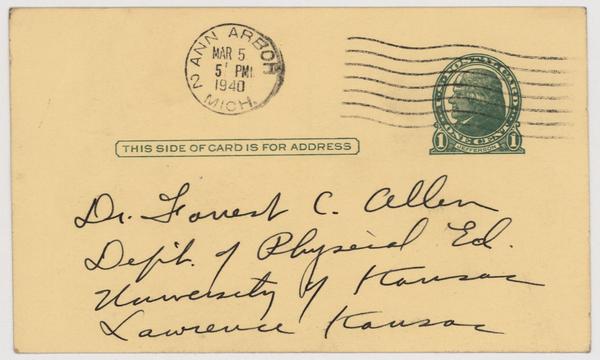 ANN ARBOR
MAR 5
5 PM
1940
2 MICH.
U.S. POSTAL CARD
ONE CENT
1 JEFFERSON 1
THIS SIDE OF CARD IS FOR ADDRESS
Dr. Forrest C. Allen
Dept. of Physical Ed.
University of Kansas
Lawrence Kansas